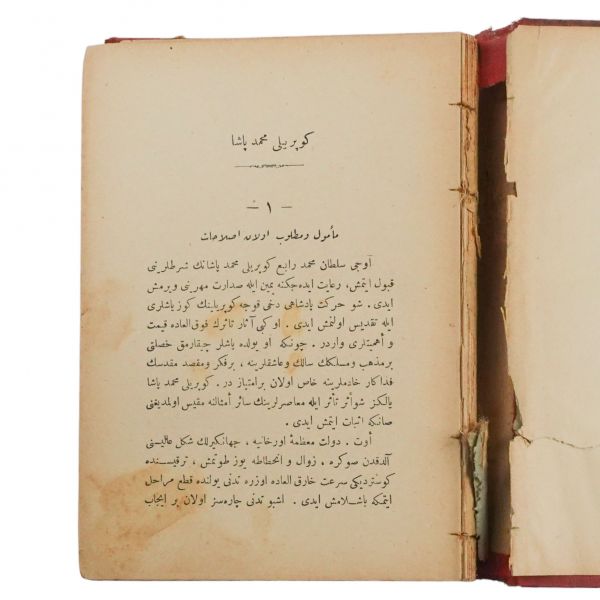 كوپریلی محمد پاشا
— ١ —
مأمول ومطلوب اولان اصلاحات
آوجی سلطان محمد رابع كوپریلی محمد پاشانك شرطلرینی
قبول ایتمش، رعایت ایده‌جكنه یمین ایله صدارت مهرینی ویرمش
ایدی. شو حركت پادشاهی دخی قوجه كوپریلینك كوز یاشلری
ایله تقدیس اولنمش ایدی. او كبی آثار تاثرك فوق‌العاده قیمت
و اهمیتلری واردر. چونكه او یولده یاشلر چیقارمق خصلتی
برمذهب ومسلكك سالك وعاشقلرینه، برفكر ومقصد مقدسك
فداكار خادملرینه خاص اولان برامتیاز در. كوپریلی محمد پاشا
یالكز شو أثر تأثر ایله معاصرلرینك سائر أمثالنه مقیس اولمدیغنی
صانكه اثبات ایتمش ایدی.
أوت. دولت معظمهٔ اورخانیه، جهانكیرلك شكل عالیسنی
آلدقدن صوكره زوال و انحطاطه یوز طوتمش، ترقیسنده
كوستردیكی سرعت خارق العاده اوزره تدنی یولنده قطع مراحل
ایتمكه باشلامش ایدی. اشبو تدنی چاره‌سز اولان بر ایجاب